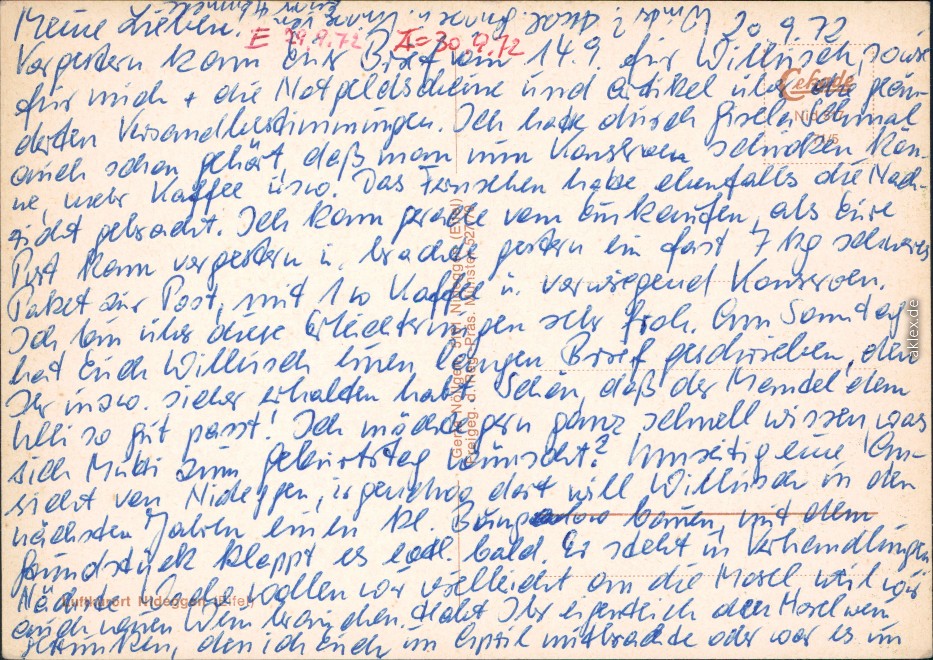 Meine Lieben. 20.9.72
E 29.9.72 A=30.9.72
Vorgestern kam Euer Brief vom 14.9. für Willusch, sowie
für mich + die Notgeldscheine und Artikel über die geän-
derten Versandbestimmungen. Ich hatte durch Gisela
auch schon gehört, daß man nun Konserven schicken kön-
ne, mehr Kaffee usw. Das Fernsehen habe ebenfalls die Nach-
richt gebracht. Ich kam gerade vom Einkaufen, als Eure
Post kam vorgestern u. brachte gestern ein fast 7 kg schweres
Paket zur Post, mit Kaffee u. vorwiegend Konserven.
Ich bin über diese Erleichterungen sehr froh. Am Sonntag
hat Euch Willusch einen langen Brief geschrieben, den
Ihr inzw. sicher erhalten habt. Schön, daß der Mantel dem
Ulli so gut passt! Ich möchte gern ganz schnell wissen, was
sich Mutti zum Geburtstag wünscht? Umseitig eine An-
sicht von Nideggen, irgendwo dort will Willusch in den
nächsten Jahren einen kl. Bungalow bauen, mit dem
Grundstück klappt es evtl. bald. Er steht in Verhandlungen
Nächste Woche wollen wir vielleicht an die Mosel weil wir
auch neuen Wein brauchen. Habt Ihr eigentlich den Moselwein
getrunken, den ich Euch im April mitbrachte oder war es im
Cekade
Luftkurort Nideggen (Eifel)
aklex.de